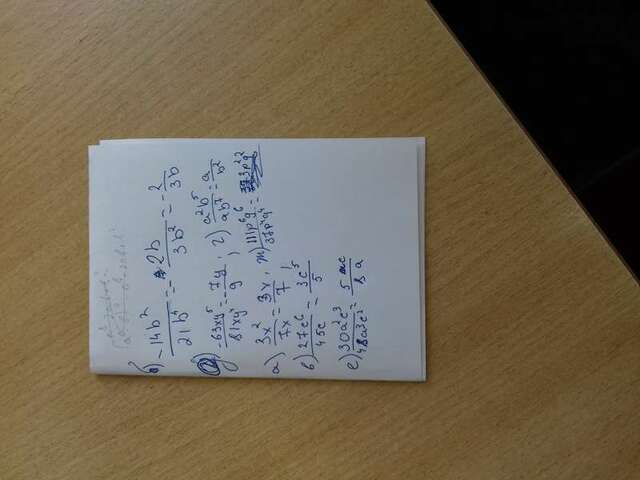 б) -14b² / 21b⁴ = - 2b / 3b² = - 2 / 3b
д) -63xy⁵ / 81xy⁴ = - 7y / 9 ; г) a²b⁵ / ab⁷ = a / b²
а) 3x² / 7x = 3x / 7 ; ж) 111p⁶q⁶ / 37p⁴q⁴ = 3p²q²
в) 27c⁶ / 45c = 3c⁵ / 5
е) 30a²c³ / 48a³c² = 5 c / 8 a